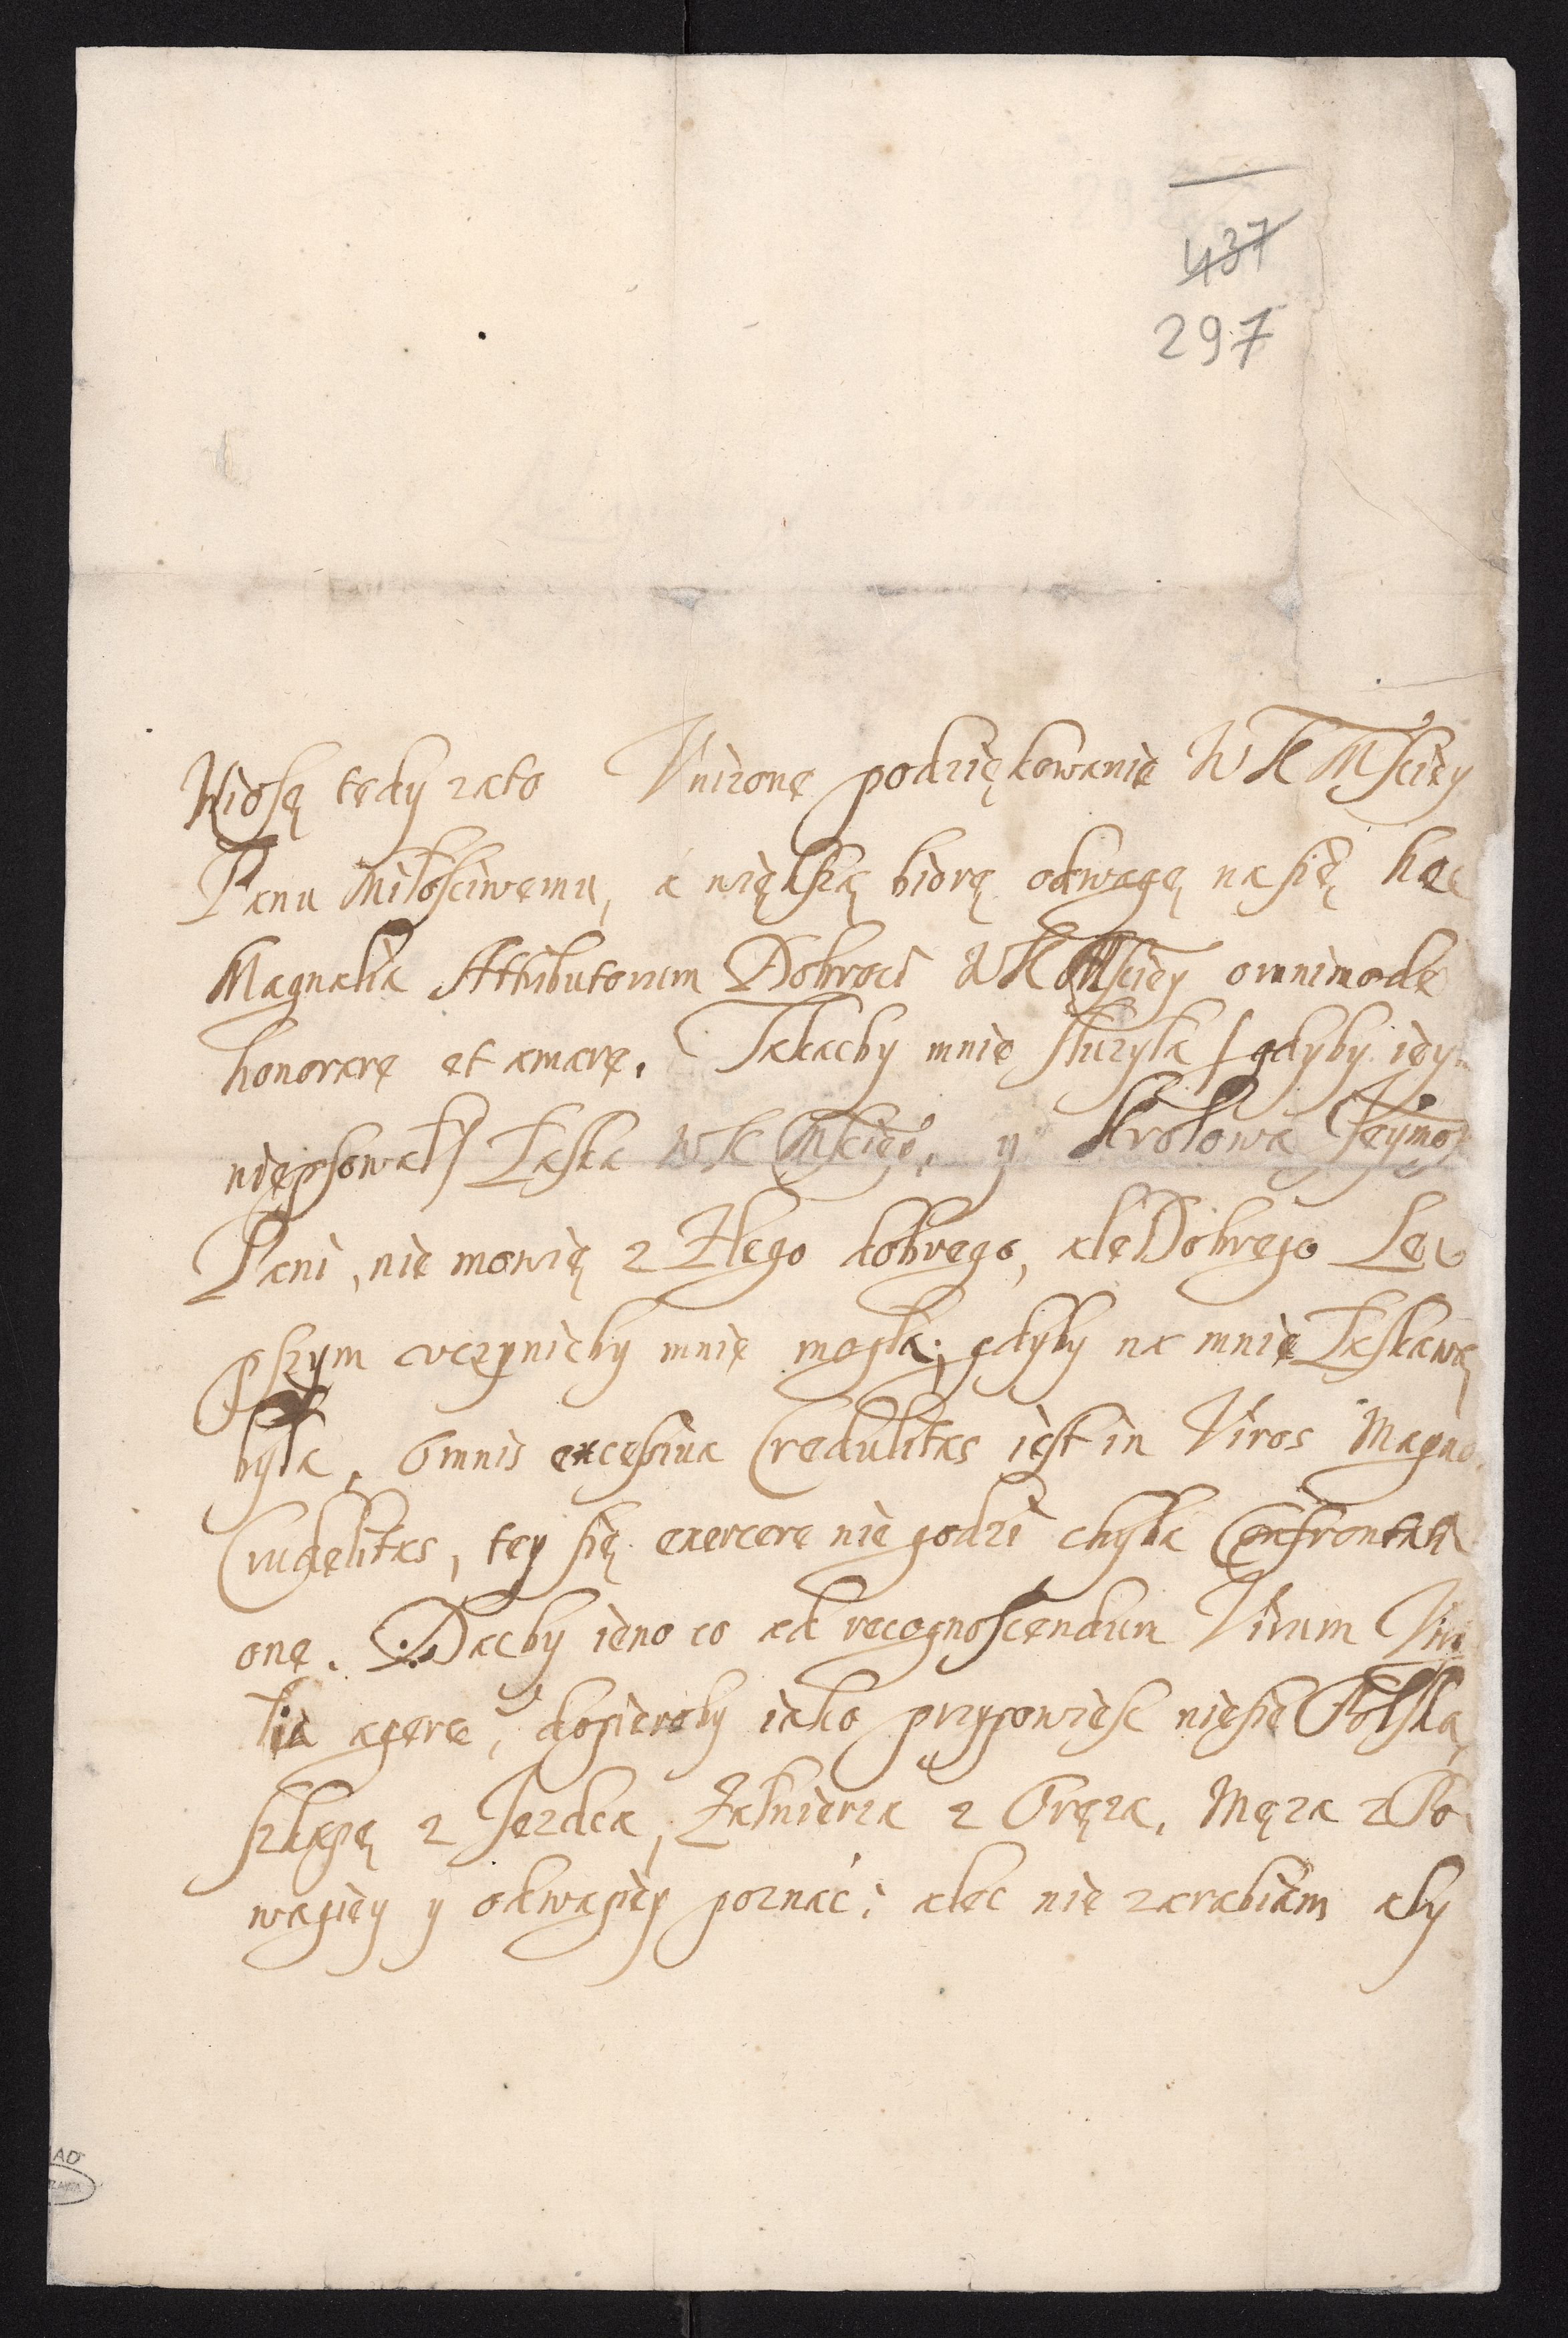 437
297
Niosę tedy zato Vnizone podziękowanie W K Mściey
Panu Miłosciwemu, a większą biorę odwagę na się hæc
Magnalia Attributorum Dobroci W K Mściey omnimode
honorare et amare. Takacby mnie słuzyła / gdyby iey
niepsował / Łaska W K Mściey, y Krolowa Jeymość
Pani, nie mowię z Złego dobrego, ale Dobrego Le
pszym vczynicby mnie mogła; gdyby na mnie Łaskawą
była, Omnis excessiua Credulitas iest in Viros Magnos
Crudelitas, tey się exercere nie godzi chyba
one. Dacby ieno co ad recognoscendum Virum Viri
lia agere, dopieroby iako przypowieść niesie Polska,
szkapę z Jezdca, Załnierza z Oręza, Męza z Po
wagiey y odwagiey poznać; alec nie zarabiam aby